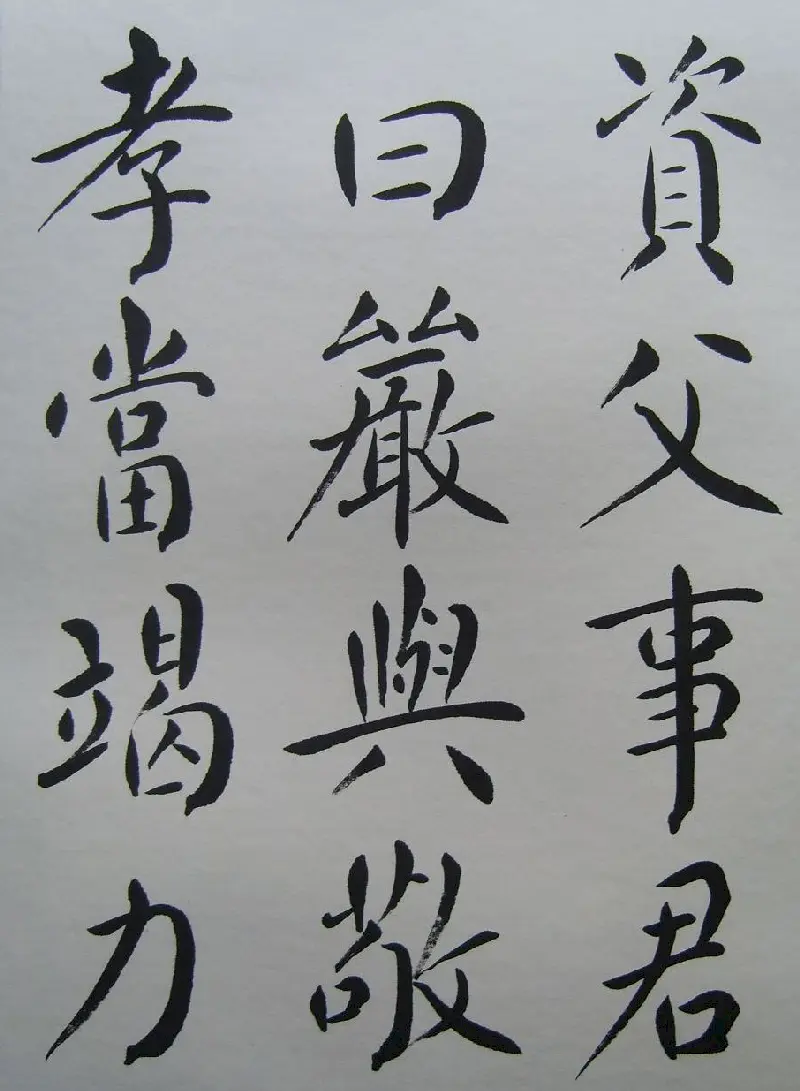 資父事君
曰嚴與敬
孝當竭力